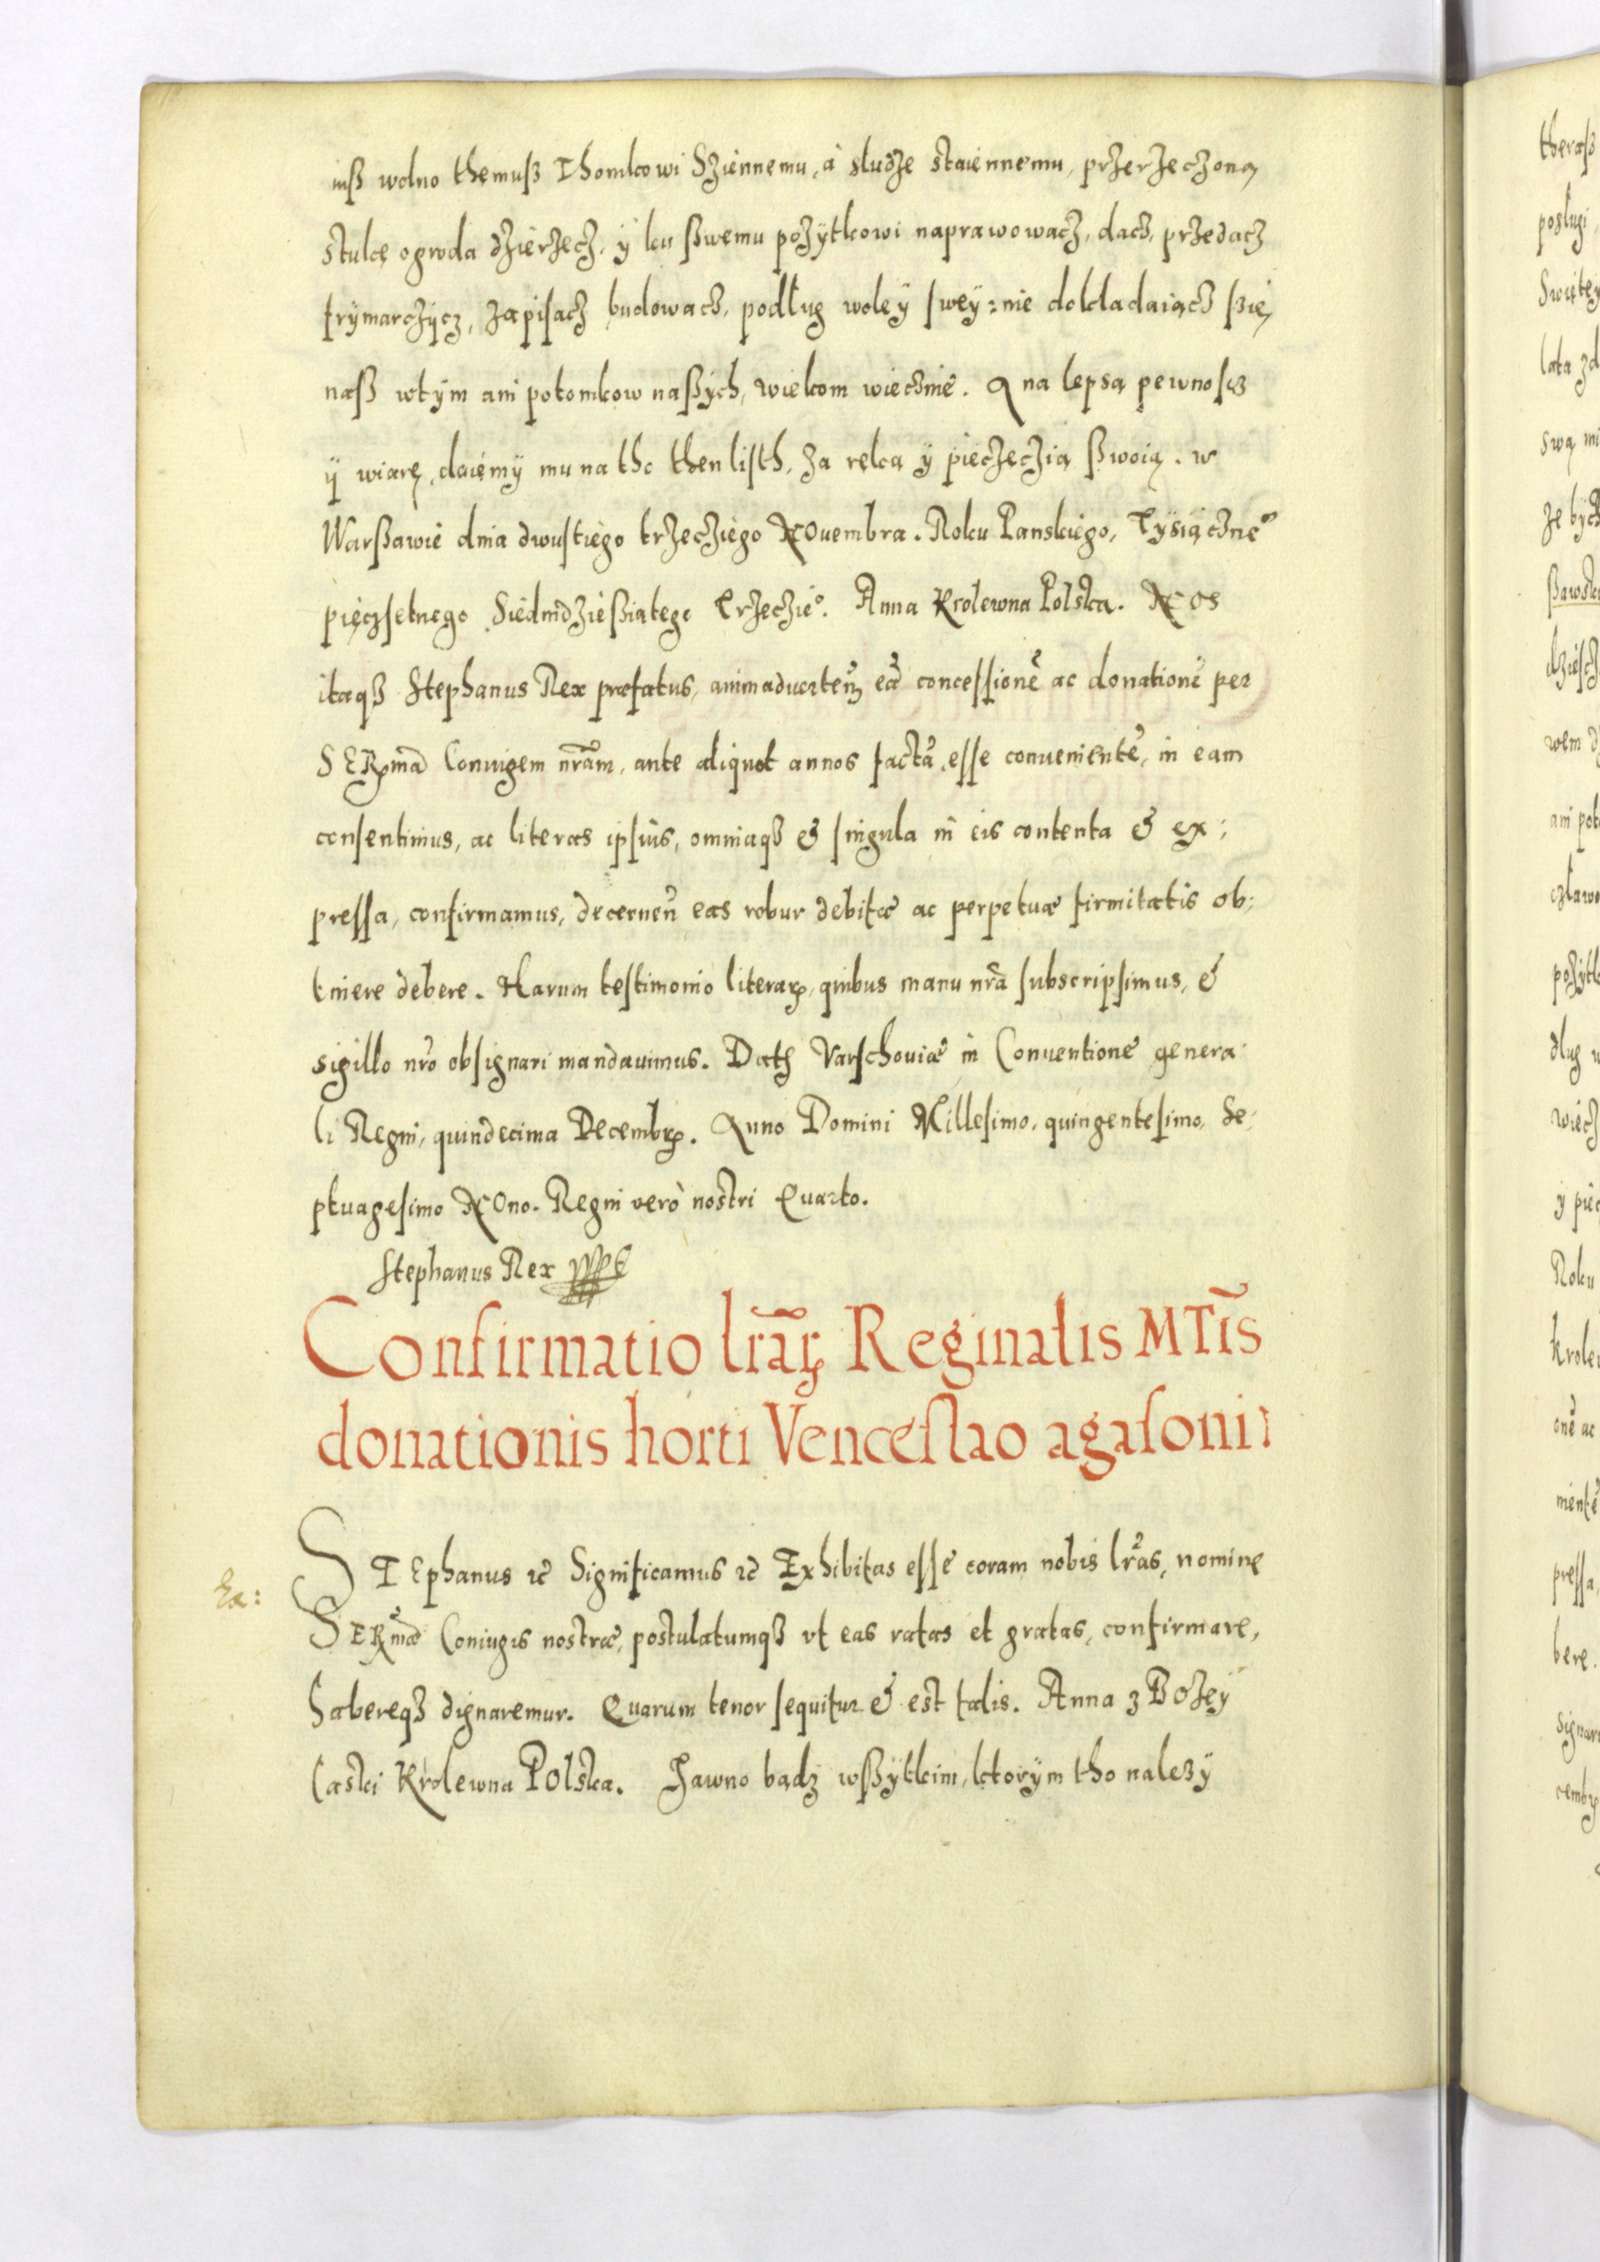 iuß wolno themuß Thomkowi Sziennemu, á sludze staiennemu, przerzeczoną
stukę ogroda dzierzecz, ÿ ku ßwemu pożÿtkowi naprawowacz, dacz, przedacz
frÿmarczÿcz, zapisacz budowacz, podług woleÿ sweÿ: nie dokladaiącz szię
naß wtÿm ani potomkow naßÿch, wiekom wiecznie. A na lepsą pewnoscz
ÿ wiarę, daiemÿ mu na tho then listh, za ręką ÿ pieczęczią ßwoią. w
Warßawie dnia dwustiego trzecziego Nouembra. Roku Panskiego, Tÿsiącznė°
pięczsetnego Siedmdzießiątego trzeczie°. Anna Krolewna Polska. Nos
itaqȝ Stephanus Rex præfatus, animaduerteñ eã concessionẽ ac donationẽ per
SERmã Coniugem nr̃am, ante aliquot annos factã, esse conuenientẽ, in eam
consentimus, ac literas ipsius, omniaqȝ & singula in eis contenta & ex:
pressa, confirmamus, decerneñ eas robur debitæ ac perpetuæ firmitatis ob:
tinere debere. Harum testimonio literarꝝ, quibus manu nr̃a subscripsimus, &
sigillo nr̃o obsignari mandauimus. Datȝ Varschouiæ in Conuentione genera
li Regni, quindecima Decembrꝭ. Anno Domini Millesimo, quingentesimo, Se:
ptuagesimo Nono. Regni verò nostri Quarto.
Stephanus Rex
Confirmatio lr̃arꝝ Reginalis MTĩs
donationis horti Venceslao agasoni
STEphanus ꝛc̃ Significamus ꝛc̃ Exhibitas esse coram nobis lr̃as, nomine
Ex:
SERmæ̃ Coniugis nostræ, postulatumqȝ vt eas ratas et gratas, confirmare,
habereqȝ dignaremur. Quarum tenor sequitur & est talis. Anna z Bozeÿ
Łaski Krolewna Polska. Jawno bądz wßÿtkim, ktorÿm tho należÿ